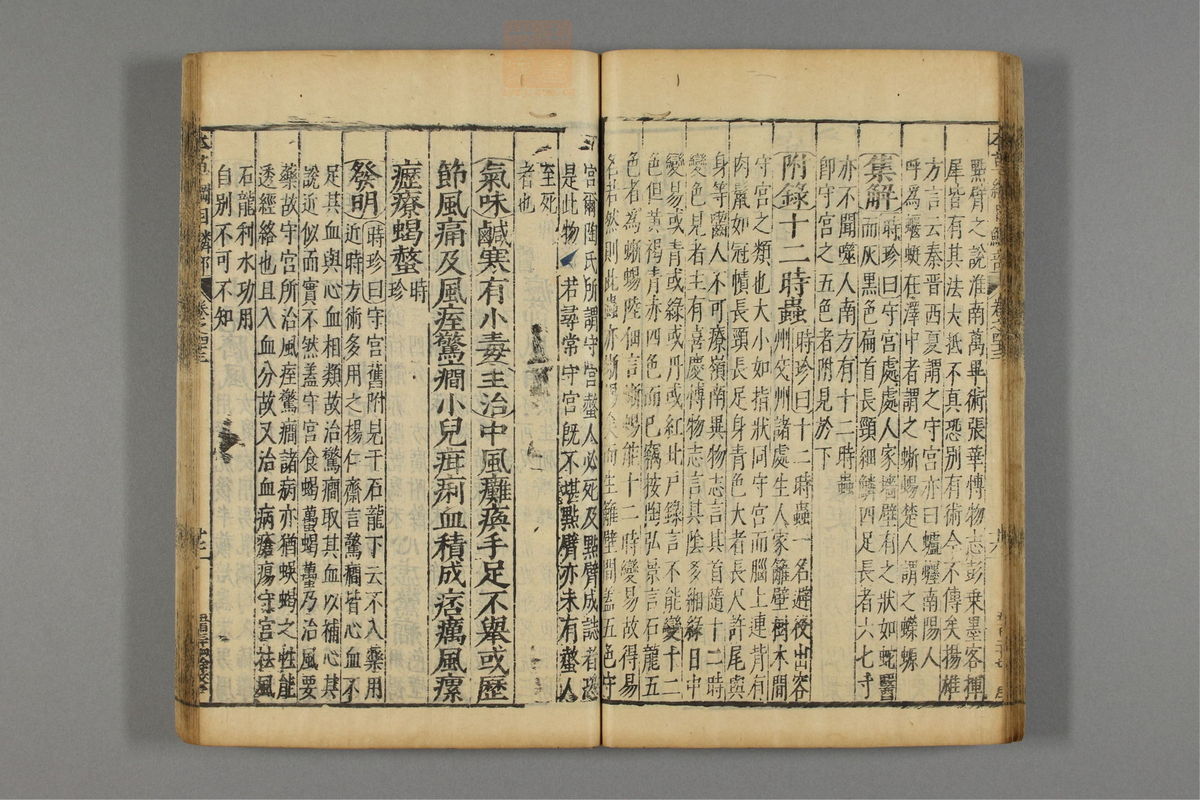 點臂之說淮南萬畢術張華博物志彭乗墨客揮
犀皆有其法大抵不真恐别有術今不傳矣揚雄
方言云秦晋西夏謂之守宫亦曰蠦𧕍南陽人
呼為蝘蜓在澤中者謂之蜥蜴楚人謂之蠑螈
集解時珍曰守宫處處人家墻壁有之狀如蛇醫
而灰黑色扁首長頸細鱗四足長者六七寸
亦不聞噬人南方有十二時蟲
卽守宫之五色者附見於下
附錄十二時蟲時珍曰十二時蟲一名避役出容
州交州諸處生人家籬壁樹木間
守宫之類也大小如指狀同守宫而腦上連背有
肉鬣如冠幘長頸長足身青色大者長尺許尾與
身等嚙人不可療嶺南異物志言其首隨十二時
變色見者主有喜慶博物志言其陰多緗綠日中
變易或青或綠或丹或紅北戶錄言不能變十二
色但黄褐青赤四色而已竊按陶弘景言石龍五
色者為蜥蜴陸佃言蜥蜴能十二時變易故得易
名若然則此蟲亦蜥蜴矣而生籬壁間蓋五色守
宫爾陶氏所謂守宫螫人必死及點臂成誌者恐
是此物若尋常守宫旣不堪點臂亦未有螫人
至死
者也
氣味鹹寒有小毒主治中風癱瘓手足不舉或歷
節風痛及風痓驚癎小兒疳痢血積成痞癘風瘰
癧療蝎螫時珍
發明時珍曰守宫舊附見于石龍下云不入藥用
近時方術多用之楊仁齋言驚癎皆心血不
足其血與心血相類故治驚癎取其血以補心其
說近似而實不然蓋守宫食蝎蠆蝎蠆乃治風要
藥故守宫所治風痓驚癎諸病亦猶蜈蝎之性能
透經絡也且入血分故又治血病瘡瘍守宫祛風
石龍利水功用
自别不可不知
本草綱目鱗部
卷之四十三